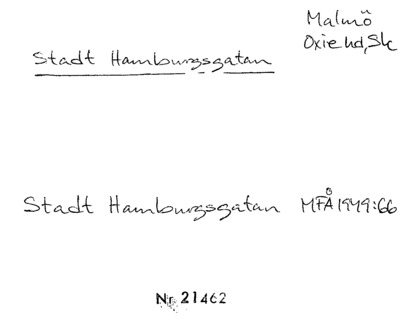 Malmö
Oxie hd, Sk
Stadt Hamburgsgatan
Stadt Hamburgsgatan MFÅ 1949:66
Nr 21462